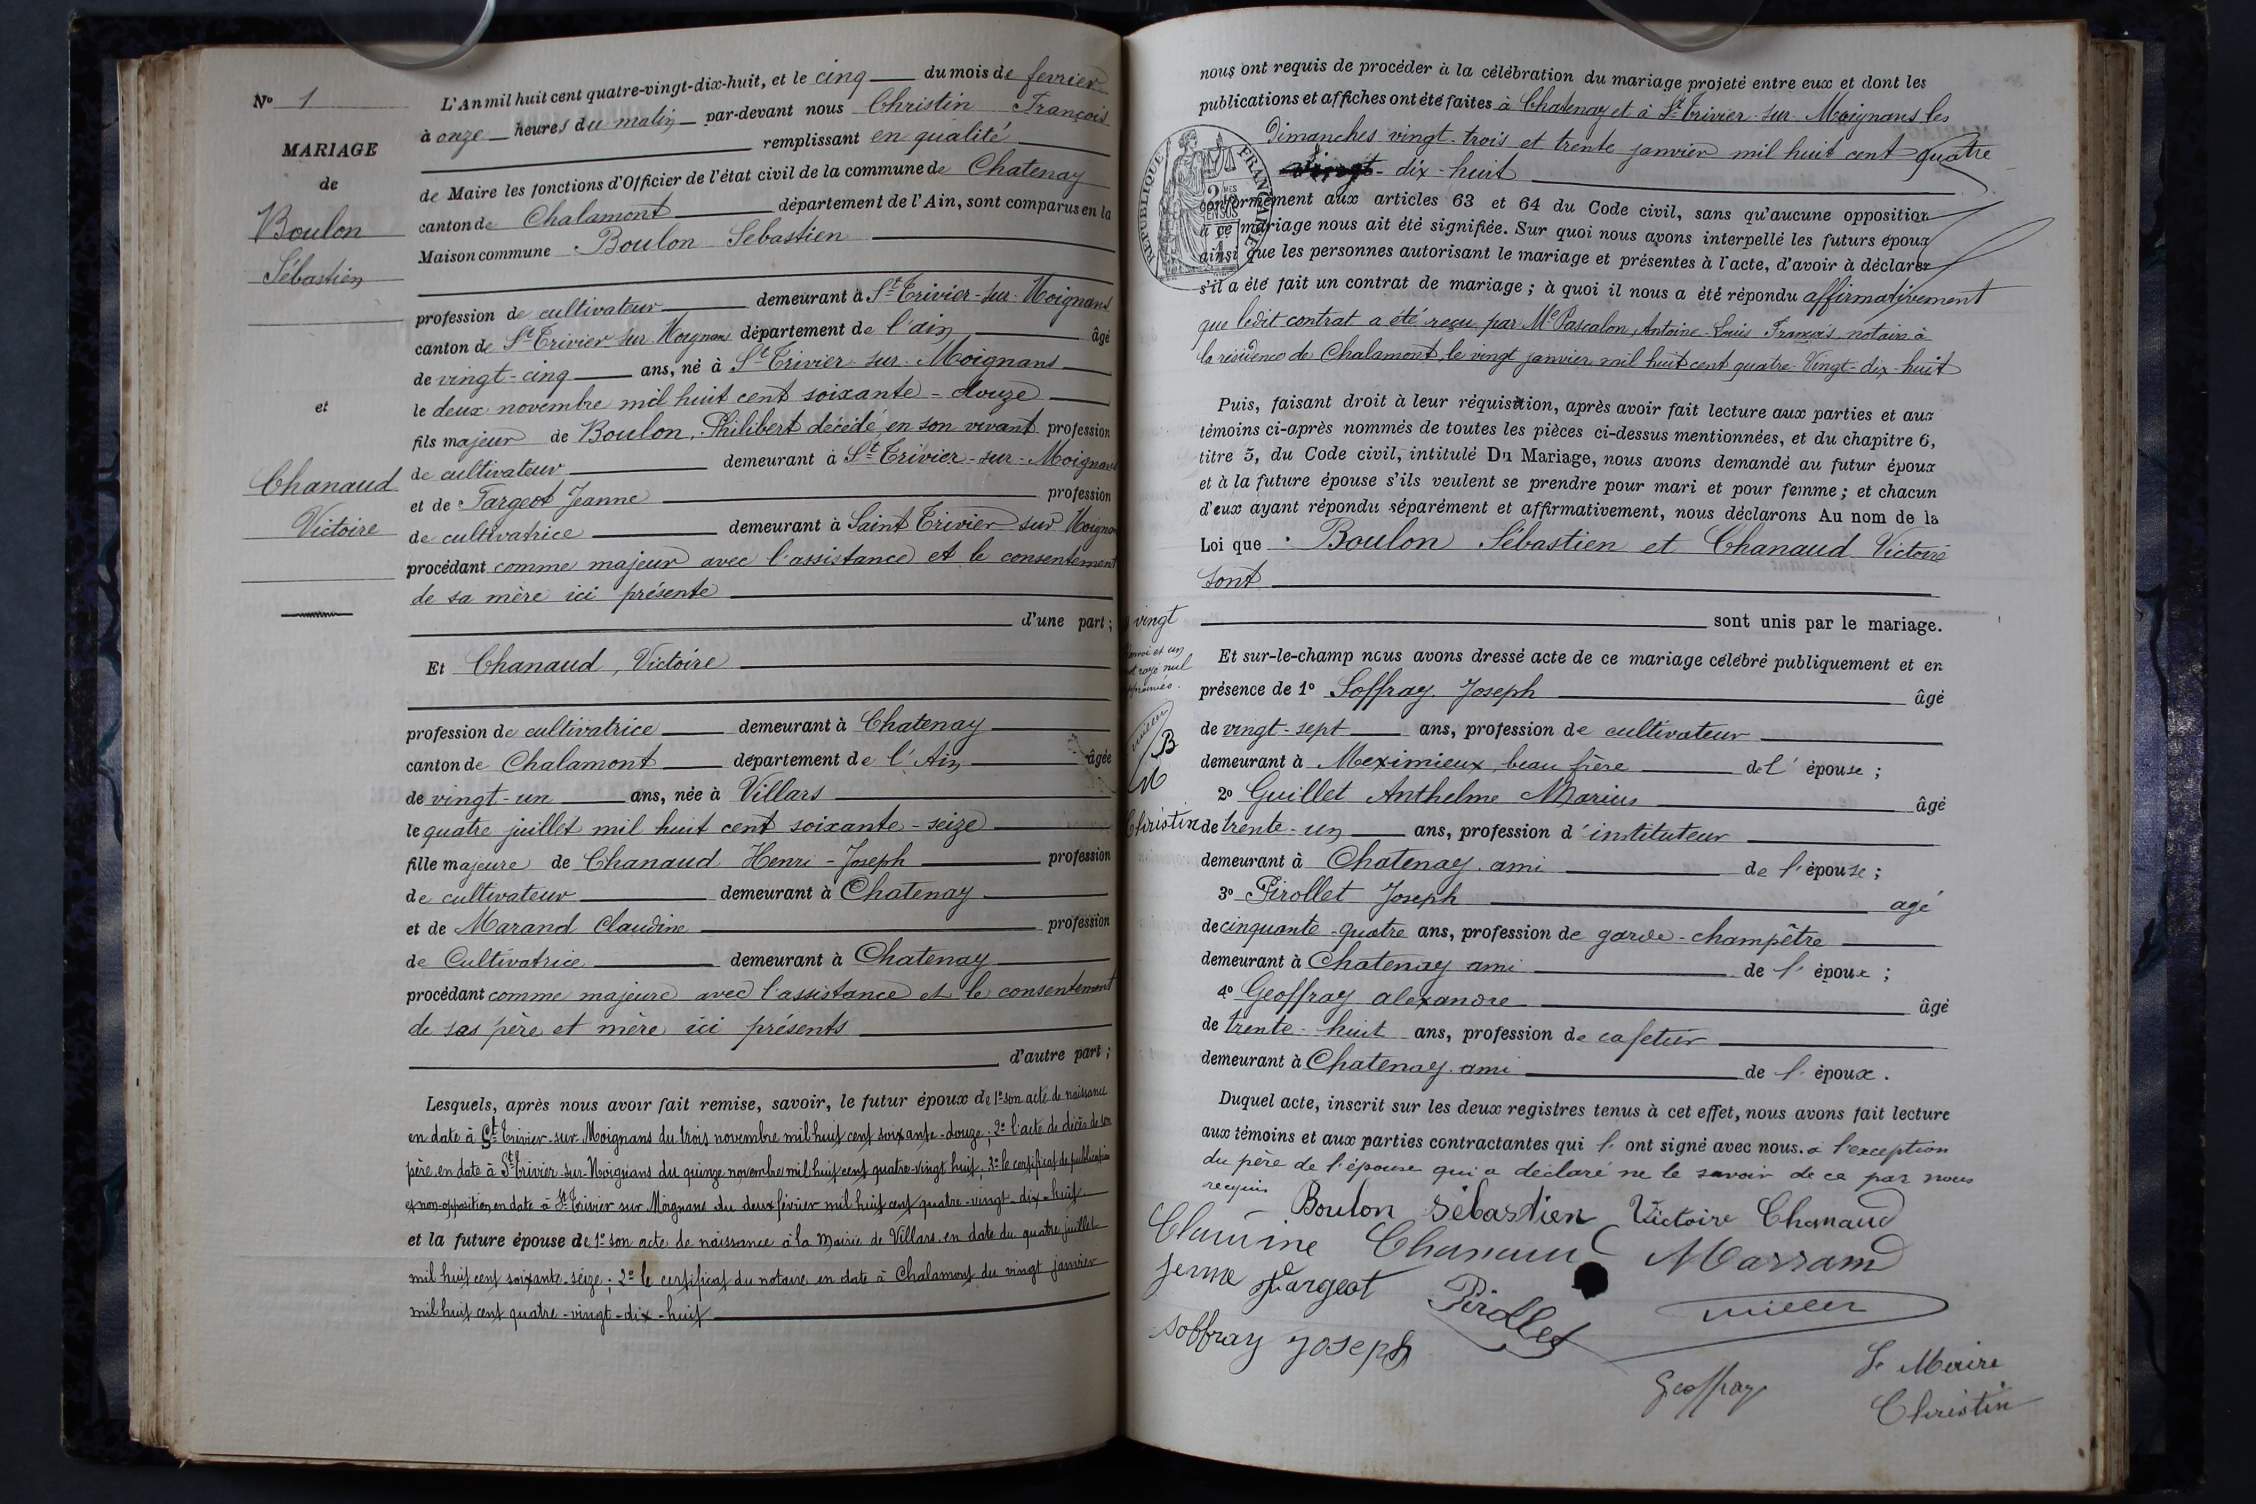 N° 1
MARIAGE
de
Boulon
Sébastien
et
Chanaud
Victoire
L'An mil huit cent quatre-vingt-dix-huit, et le cinq du mois de fevrier
à onze heures du matin par-devant nous Christin François
remplissant en qualité
de Maire les fonctions d'Officier de l'état civil de la commune de Chatenay
canton de Chalamont département de l'Ain, sont comparus en la
Maison commune Boulon Sebastien
profession de cultivateur demeurant à St Trivier-sur-Moignans
canton de St Trivier sur Moignans département de l'ain âgé
de vingt-cinq ans, né à St Trivier-sur-Moignans
le deux novembre mil huit cent soixante-douze
fils majeur de Boulon, Philibert décédé en son vivant profession
de cultivateur demeurant à St Trivier-sur-Moignans
et de Targeot Jeanne profession
de cultivatrice demeurant à Saint Trivier sur Moignans
procédant comme majeur avec l'assistance et le consentement
de sa mère ici présente
d'une part ;
Et Chanaud, Victoire
profession de cultivatrice demeurant à Chatenay
canton de Chalamont département de l'Ain âgée
de vingt-un ans, née à Villars
le quatre juillet mil huit cent soixante-seize
fille majeure de Chanaud Henri-Joseph profession
de cultivateur demeurant à Chatenay
et de Marand Claudine profession
de Cultivatrice demeurant à Chatenay
procédant comme majeure avec l'assistance et le consentement
de sas père et mère ici présents
d'autre part ;
Lesquels, après nous avoir fait remise, savoir, le futur époux de 1° son acte de naissance
en date à St Trivier-sur-Moignans du trois novembre mil huit cent soixante-douze ; 2° l'acte de décès de son
père en date à St Trivier-sur-Moignans du quinze novembre mil huit cent quatre-vingt huit ; 3° le certificat de publication
et non-opposition en date à St Trivier sur Moignans du deux février mil huit cent quatre-vingt-dix-huit
et la future épouse de 1° son acte de naissance à la Mairie de Villars en date du quatre juillet
mil huit cent soixante-seize ; 2° le certificat du notaire en date à Chalamont du vingt janvier
mil huit cent quatre-vingt-dix-huit
nous ont requis de procéder à la célébration du mariage projeté entre eux et dont les
publications et affiches ont été faites à Chatenay et à St Trivier-sur-Moignans les
Dimanches vingt-trois et trente janvier mil huit cent quatre
vingt-dix-huit
RÉPUBLIQUE FRANÇAISE
conformément aux articles 63 et 64 du Code civil, sans qu'aucune opposition
à ce mariage nous ait été signifiée. Sur quoi nous avons interpellé les futurs époux
ainsi que les personnes autorisant le mariage et présentes à l'acte, d'avoir à déclarer
s'il a été fait un contrat de mariage ; à quoi il nous a été répondu affirmativement
que ledit contrat a été reçu par Me Pascalon, Antoine-Louis François, notaire à
la résidence de Chalamont, le vingt janvier mil huit cent quatre-Vingt-dix-huit
Puis, faisant droit à leur réquisition, après avoir fait lecture aux parties et aux
témoins ci-après nommés de toutes les pièces ci-dessus mentionnées, et du chapitre 6,
titre 5, du Code civil, intitulé Du Mariage, nous avons demandé au futur époux
et à la future épouse s'ils veulent se prendre pour mari et pour femme ; et chacun
d'eux ayant répondu séparément et affirmativement, nous déclarons Au nom de la
Loi que Boulon Sébastien et Chanaud Victoire
sont
sont unis par le mariage.
vingt
renvoi et un
mot rayé nul
approuvés.
B
M
Christin
Et sur-le-champ nous avons dressé acte de ce mariage célébré publiquement et en
présence de 1° Soffray Joseph âgé
de vingt-sept ans, profession de cultivateur
demeurant à Meximieux, beau frère de l'épouse ;
2° Guillet Anthelme Marius âgé
de trente-un ans, profession d'instituteur
demeurant à Chatenay ami de l'épouse ;
3° Pirollet Joseph agé
de cinquante-quatre ans, profession de garde-champêtre
demeurant à Chatenay ami de l'époux ;
4° Geoffray alexandre âgé
de trente-huit ans, profession de cafetier
demeurant à Chatenay ami de l'époux.
Duquel acte, inscrit sur les deux registres tenus à cet effet, nous avons fait lecture
aux témoins et aux parties contractantes qui l'ont signé avec nous. a l'exception
du père de l'épouse qui a déclaré ne le savoir de ce par nous
requis
Boulon Sébastien Victoire Chanaud
Claudine Chanaud Marrand
jenne Targeot Pirollet
Soffray joseph
Geoffray
Le Maire
Christin